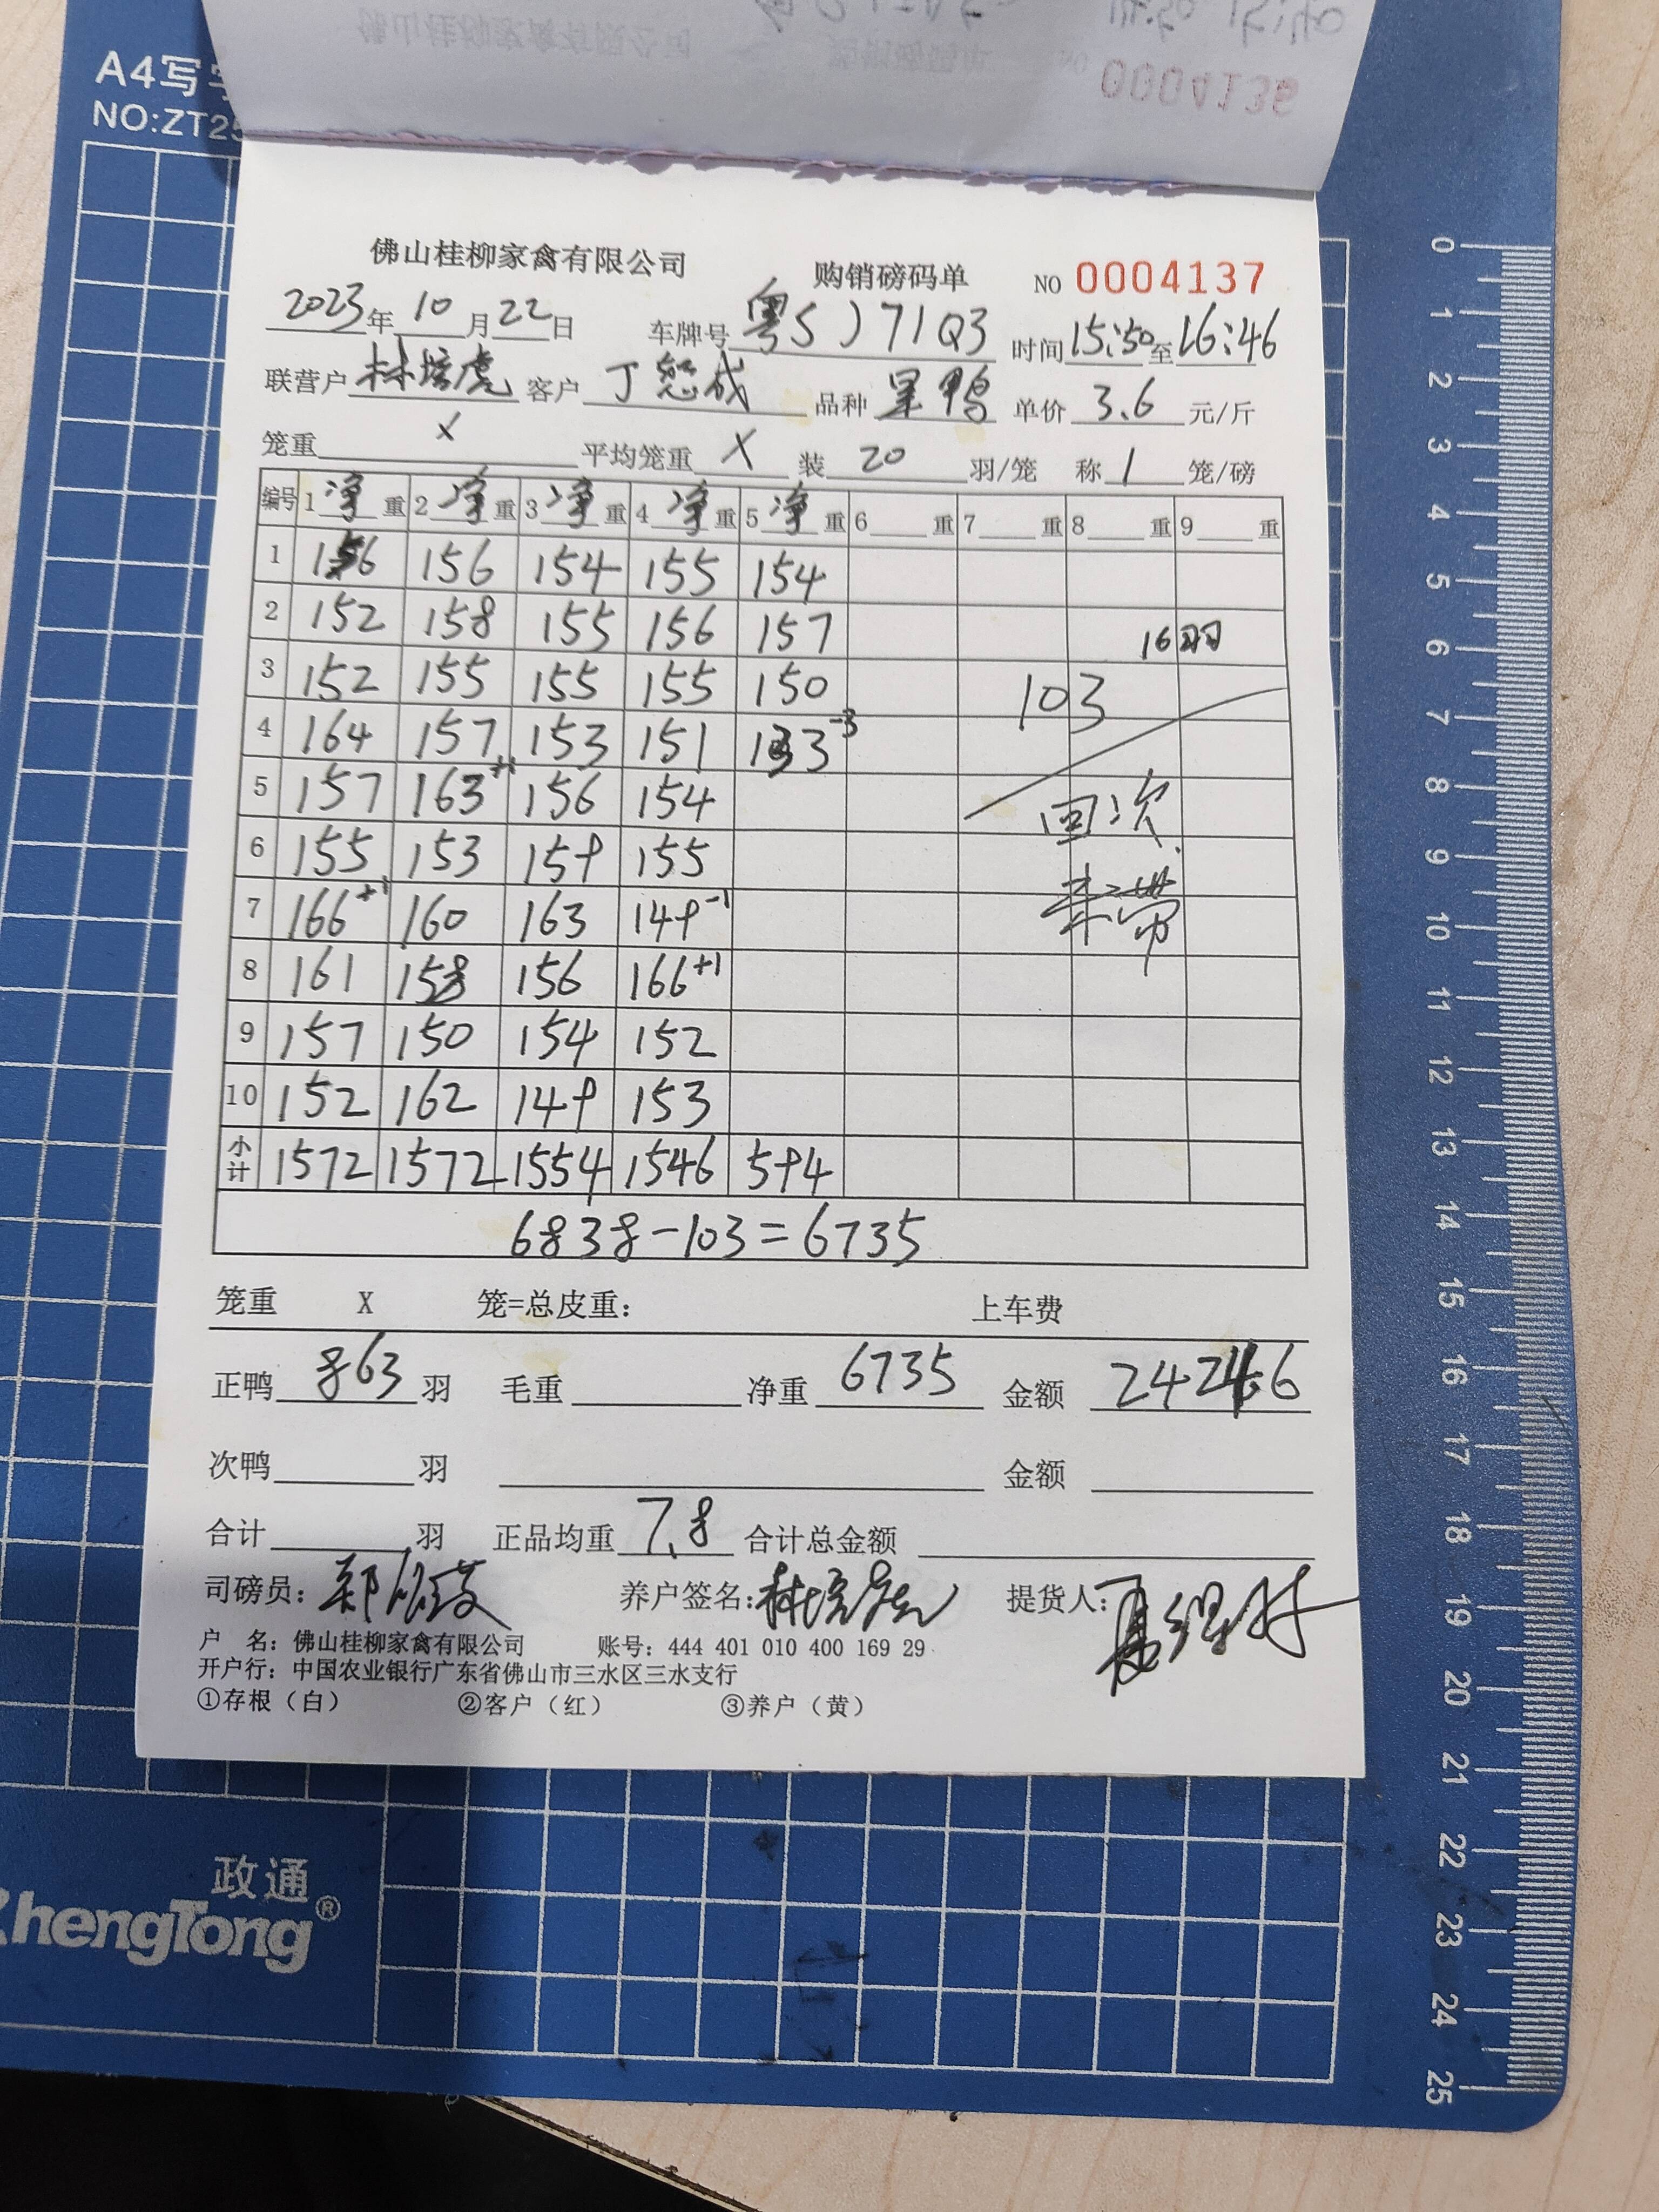 A4写
NO:ZT25
0004136
佛山桂柳家禽有限公司 购销磅码单 NO 0004137
2023年10月22日 车牌号 粤SJ71Q3 时间15:50至16:46
联营户 林培虎 客户 丁恕成 品种 黑鸭 单价 3.6 元/斤
笼重 X 平均笼重 X 装 20 羽/笼 称 1 笼/磅
编号 1净重 2净重 3净重 4净重 5净重 6 重 7 重 8 重 9 重
1 156 156 154 155 154
2 152 158 155 156 157 16羽
3 152 155 155 155 150 103
4 164 157 153 151 133-3
5 157 163+1 156 154 回次
6 155 153 159 155
7 166+1 160 163 149-1 未带
8 161 158 156 166+1
9 157 150 154 152
10 152 162 149 153
小计 1572 1572 1554 1546 594
6838-103=6735
笼重 X 笼=总皮重: 上车费
正鸭 863 羽 毛重 净重 6735 金额 24246
次鸭 羽 金额
合计 羽 正品均重 7.8 合计总金额
司磅员: 养户签名:林培虎 提货人:
户 名: 佛山桂柳家禽有限公司 账号: 444 401 010 400 169 29
开户行: 中国农业银行广东省佛山市三水区三水支行
①存根(白) ②客户(红) ③养户(黄)
政通
ZhengTong®
0
1
2
3
4
5
6
7
8
9
10
11
12
13
14
15
16
17
18
19
20
21
22
23
24
25